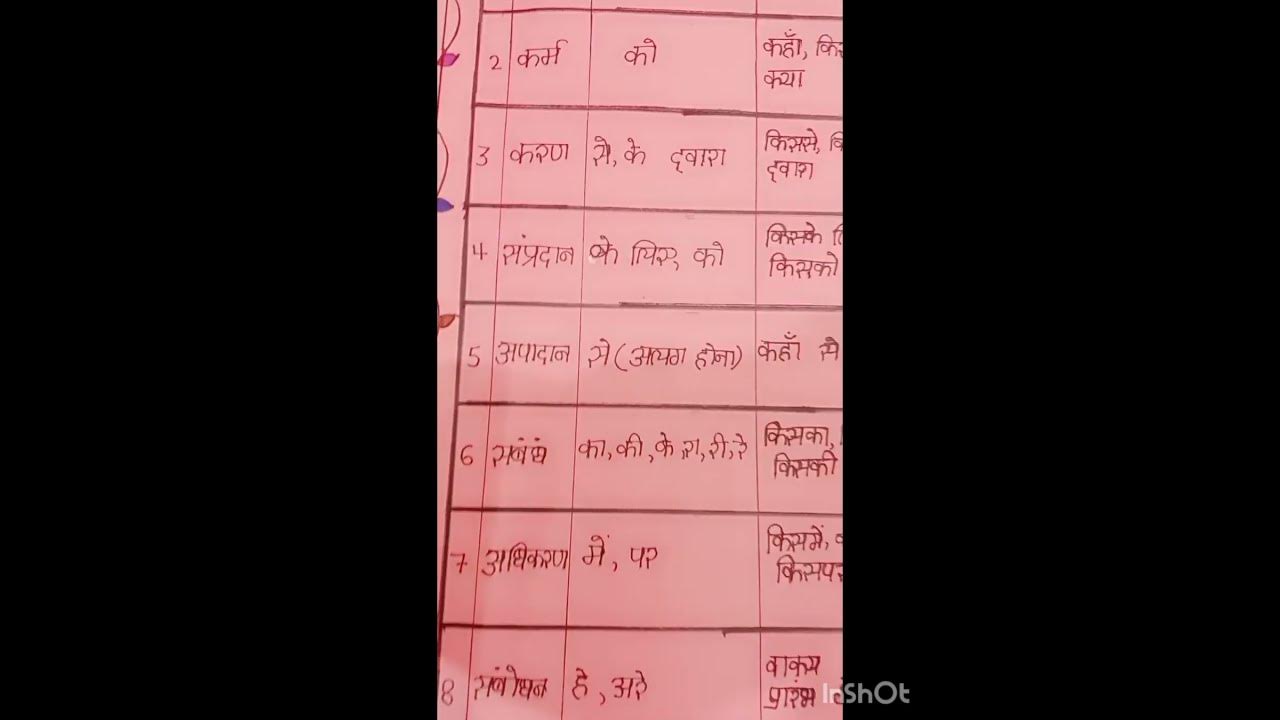 2 कर्म को कहाँ,
क्या
3 करण से, के द्वारा किससे,
द्वारा
4 संप्रदान के लिए, को किसके
किसको
5 अपादान से (अलग होना) कहाँ से
6 संबंध का, की, के, रा, री, रे किसका,
किसकी
7 अधिकरण में, पर किसमें,
किसपर
8 संबोधन हे, अरे वाक्य
प्रारंभ
InShOt